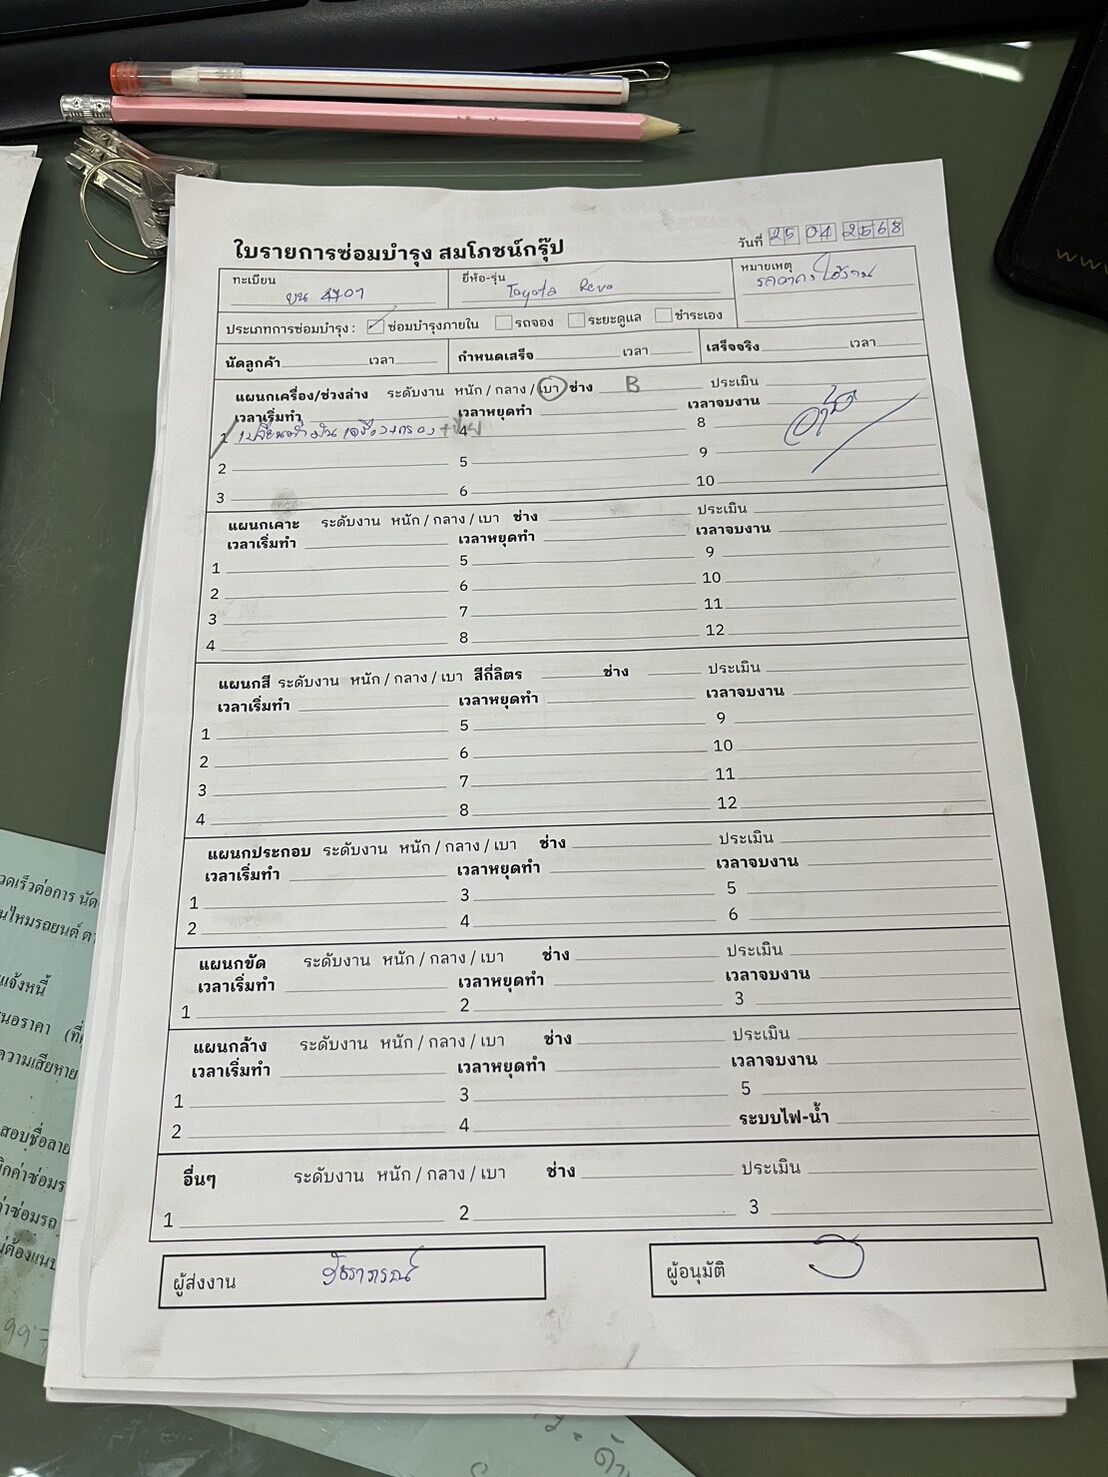 ใบรายการซ่อมบำรุง สมโภชน์กรุ๊ป
วันที่ 25 04 2568
ทะเบียน ยี่ห้อ-รุ่น หมายเหตุ
บน 4701 Toyota Revo
ประเภทการซ่อมบำรุง : ซ่อมบำรุงภายใน รถจอง ระยะดูแล ชำระเอง
นัดลูกค้า เวลา กำหนดเสร็จ เวลา เสร็จจริง เวลา
แผนกเครื่อง/ช่วงล่าง ระดับงาน หนัก / กลาง / เบา ช่าง B ประเมิน
เวลาเริ่มทำ เวลาหยุดทำ เวลาจบงาน
1 เปลี่ยนถ่ายน้ำมันเครื่อง+กรอง 4 8
2 5 9
3 6 10
แผนกเคาะ ระดับงาน หนัก / กลาง / เบา ช่าง ประเมิน
เวลาเริ่มทำ เวลาหยุดทำ เวลาจบงาน
1 5 9
2 6 10
3 7 11
4 8 12
แผนกสี ระดับงาน หนัก / กลาง / เบา สีกี่ลิตร ช่าง ประเมิน
เวลาเริ่มทำ เวลาหยุดทำ เวลาจบงาน
1 5 9
2 6 10
3 7 11
4 8 12
แผนกประกอบ ระดับงาน หนัก / กลาง / เบา ช่าง ประเมิน
เวลาเริ่มทำ เวลาหยุดทำ เวลาจบงาน
1 3 5
2 4 6
แผนกขัด ระดับงาน หนัก / กลาง / เบา ช่าง ประเมิน
เวลาเริ่มทำ เวลาหยุดทำ เวลาจบงาน
1 2 3
แผนกล้าง ระดับงาน หนัก / กลาง / เบา ช่าง ประเมิน
เวลาเริ่มทำ เวลาหยุดทำ เวลาจบงาน
1 3 5
2 4 ระบบไฟ-น้ำ
อื่นๆ ระดับงาน หนัก / กลาง / เบา ช่าง ประเมิน
1 2 3
ผู้ส่งงาน ผู้อนุมัติ
แจ้งหนี้